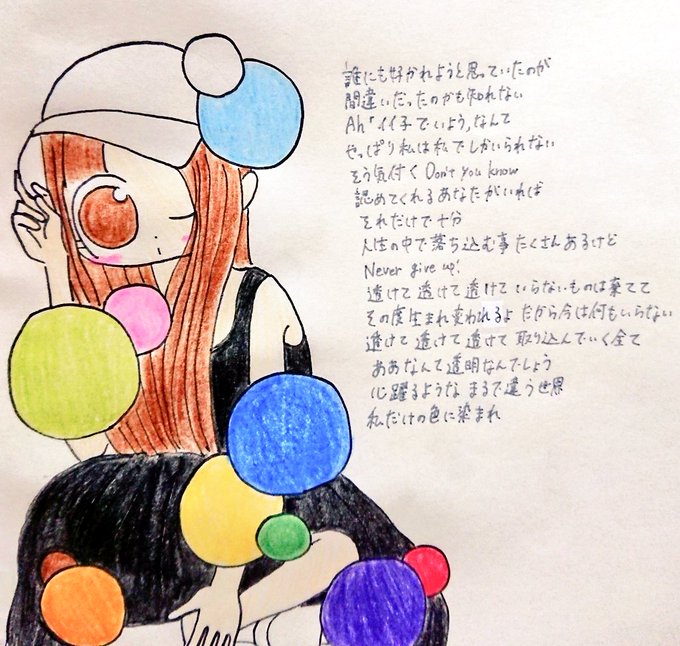 誰にも好かれようと思っていたのが
間違いだったのかも知れない
Ah「イイ子でいよう」なんて
やっぱり私は私でしかいられない
そう気付く Don't you know
認めてくれるあなたがいれば
それだけで十分
人生の中で落ち込む事たくさんあるけど
Never give up!
透けて 透けて 透けて いらないものは棄てて
その度生まれ変われるよ だから今は何もいらない
透けて 透けて 透けて 取り込んでいく全て
ああなんて透明なんでしょう
心躍るような まるで違う世界
私だけの色に染まれ